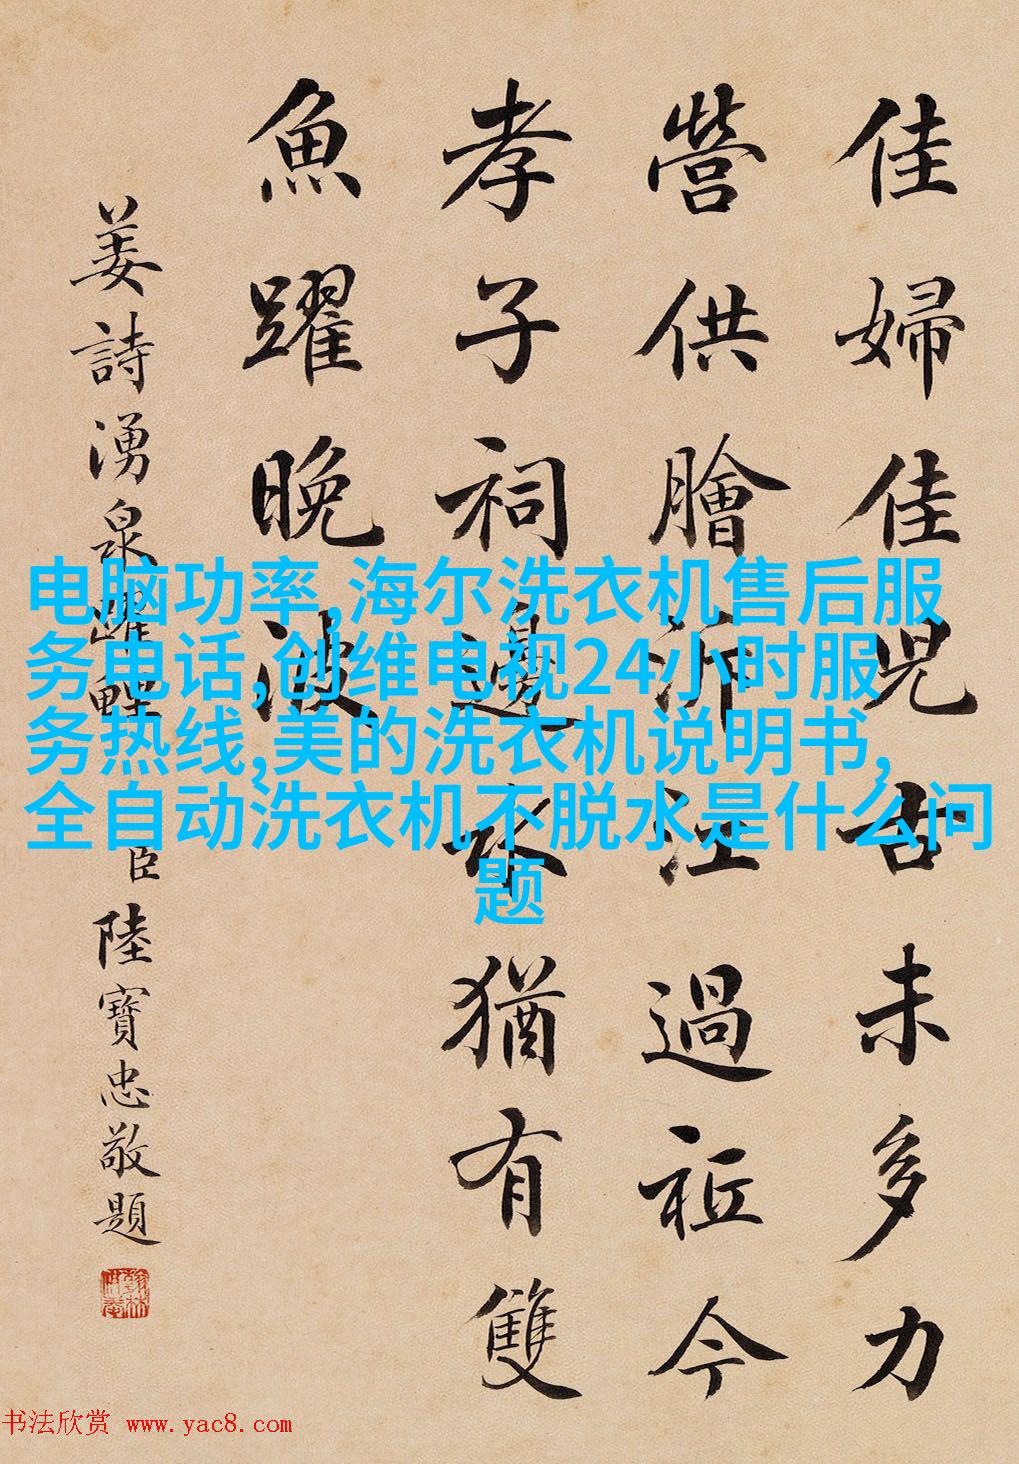 佳婦佳兒甘未多力
營供膾沂江過社今
孝子祠邊水猶有雙
魚躍晚波
姜詩湧泉躍鯉 臣陸寶忠敬題
电脑功率,海尔洗衣机售后服
务电话,创维电视24小时服
务热线,美的洗衣机说明书,
全自动洗衣机不脱水是什么问
题
书法欣赏 www.yac8.com